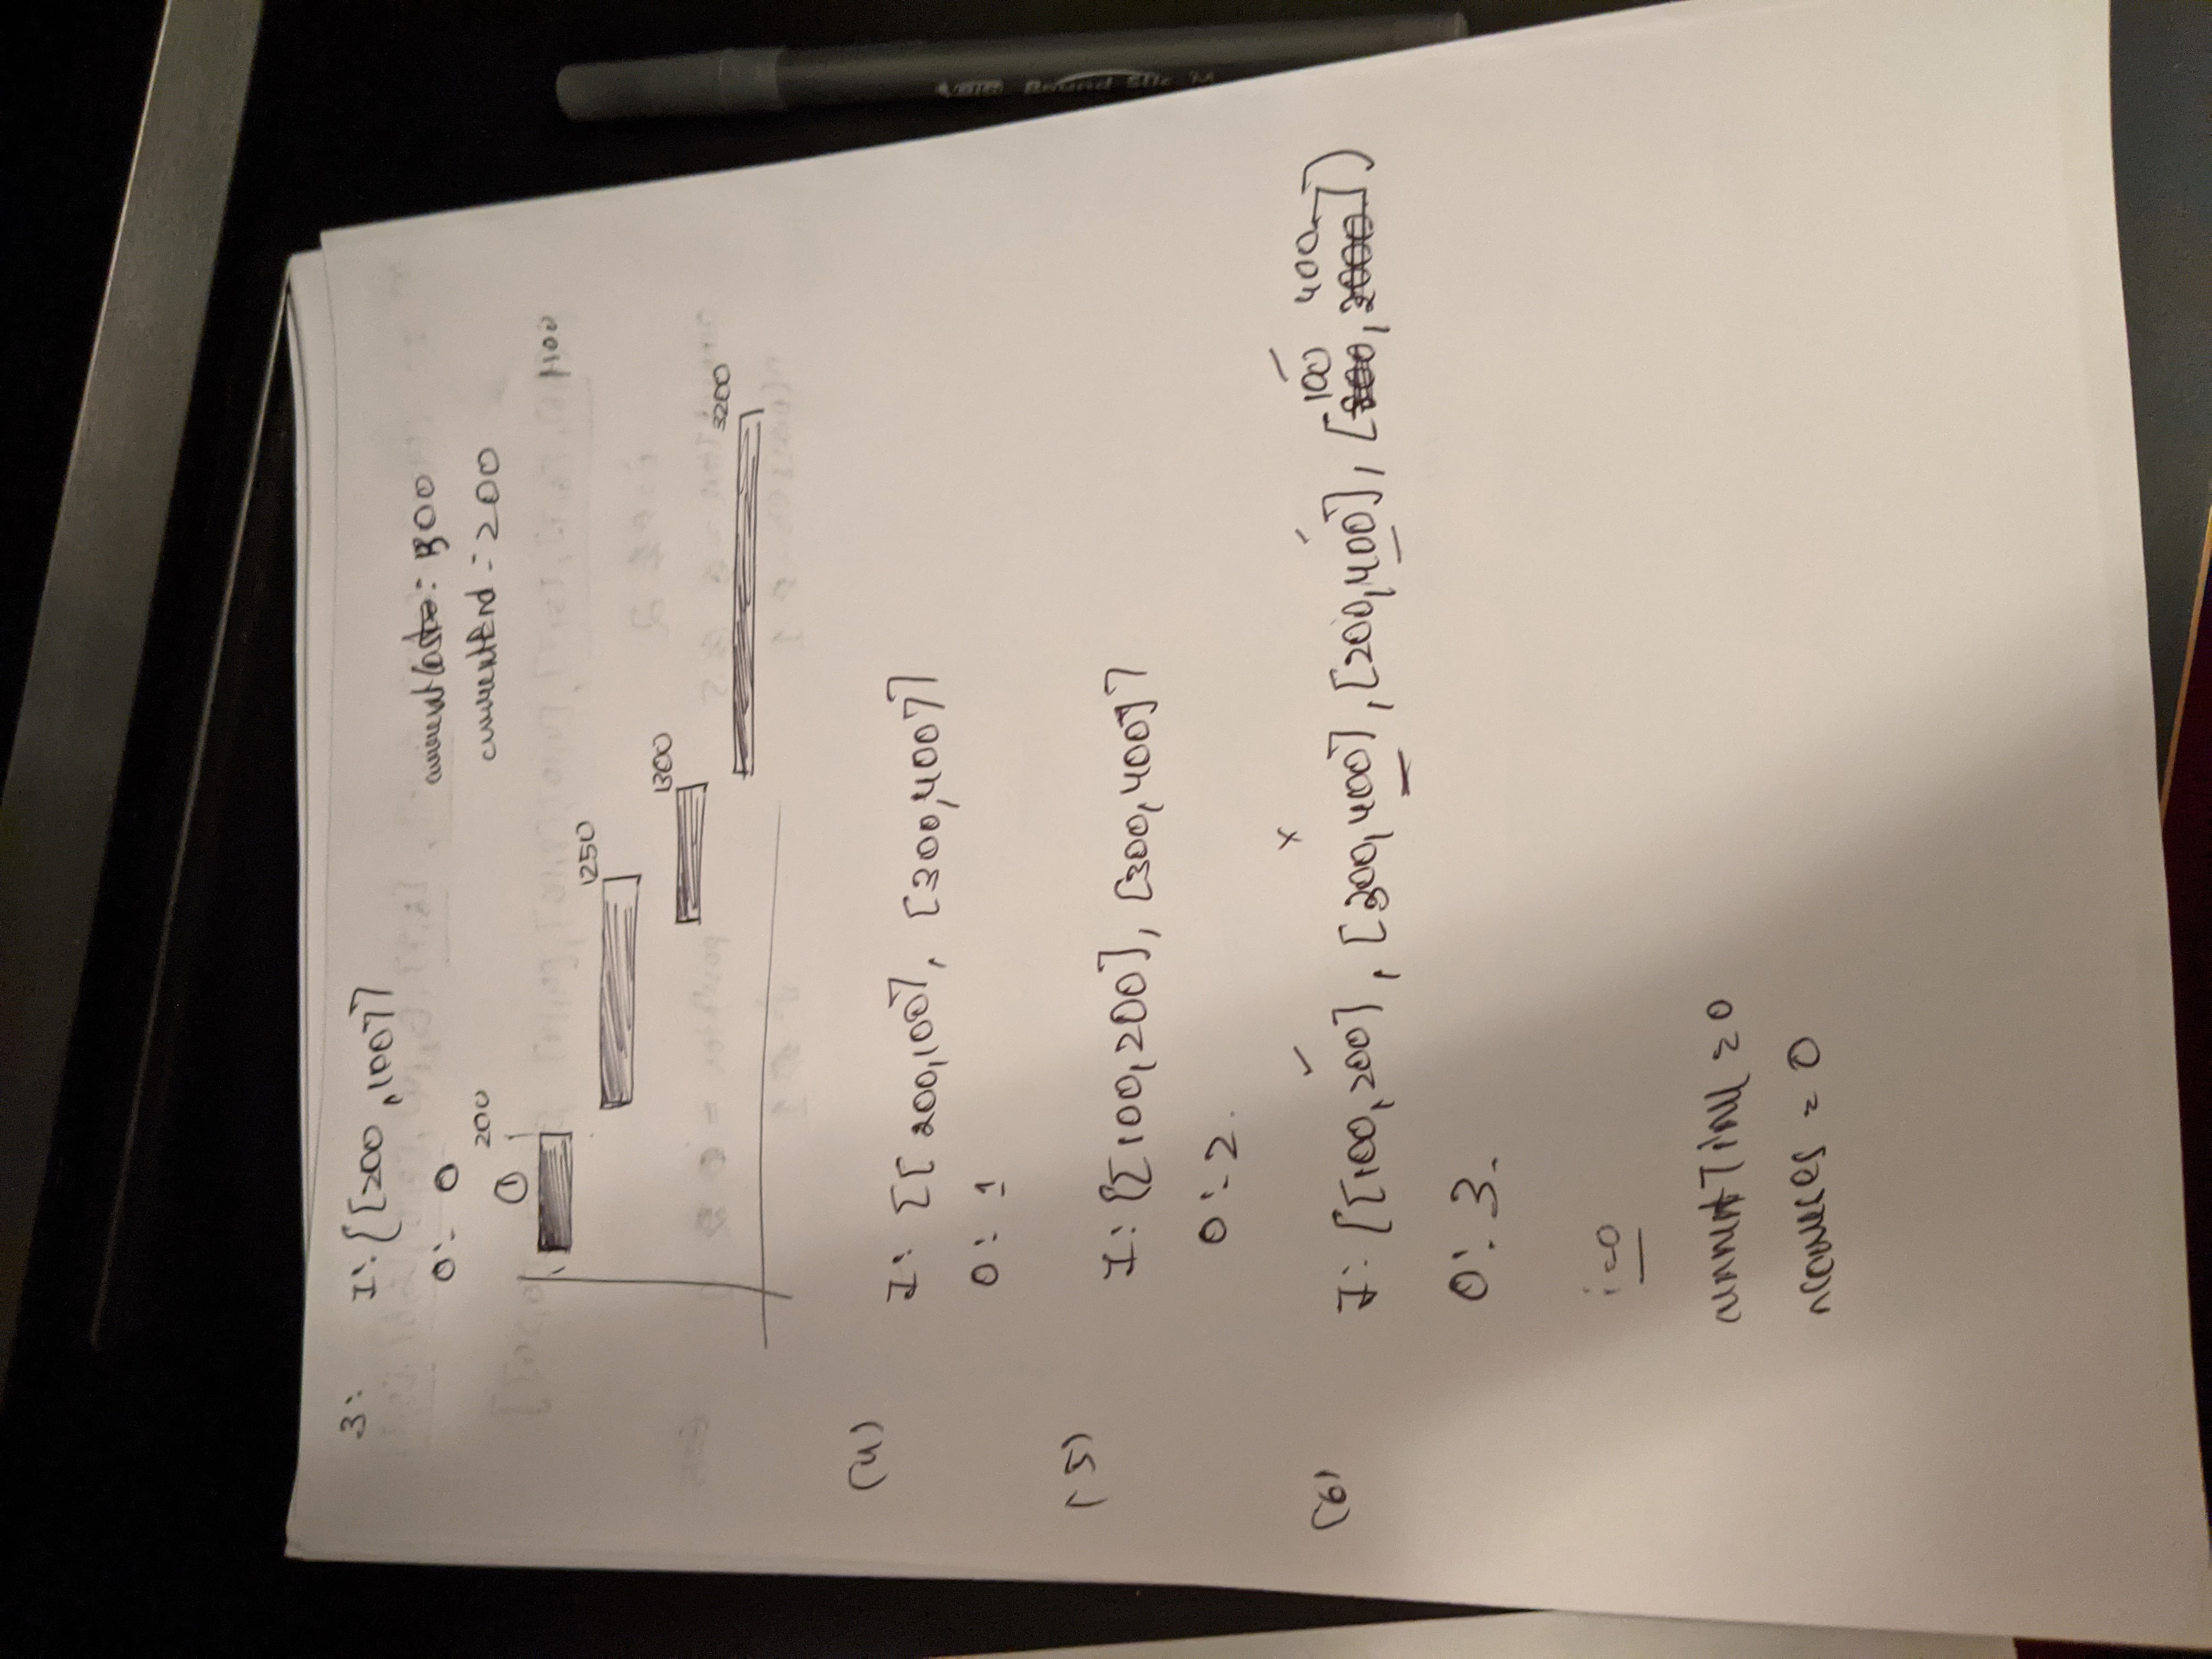 3: I: [[200,100]]
O: 0
currentEnd = 200
200
①
1250
1300
3200
(4) I: [[200,100], [300,400]]
O: 1
(5) I: [[100,200], [300,400]]
O: 2.
(6) I: [[100,200], [300,400], [200,400], [100, 400])
O: 3.
i=0
currentTime = 0
noCourses = 0
Round Stic M